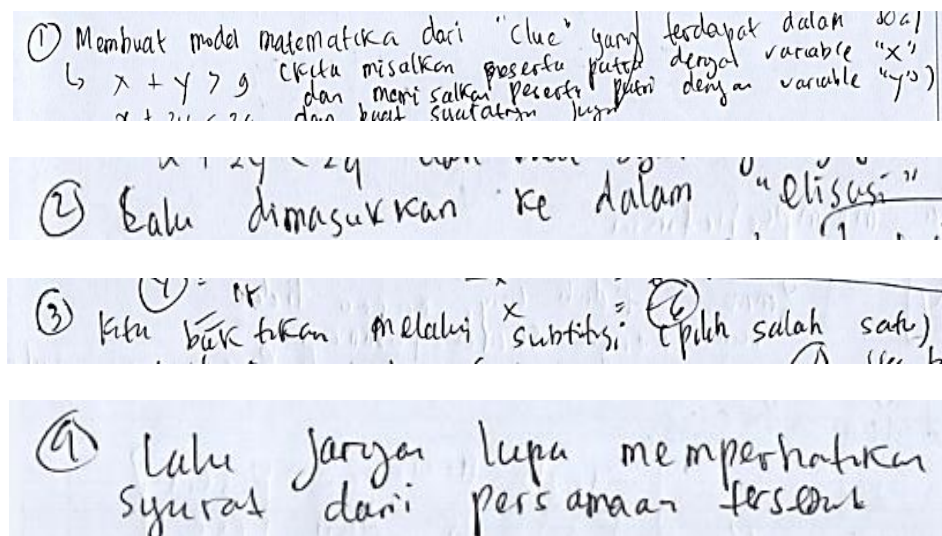 ① Membuat model matematika dari "clue" yang terdapat dalam soal
↳ x + y > 9 (kita misalkan peserta putra dengan variable "x"
dan memisalkan peserta putri dengan variable "y")
x + 2y < 24 dan buat syaratnya juga
② Lalu dimasukkan ke dalam "elisasi"
③ kita buktikan melalui subtitusi (pilih salah satu)
④ Lalu jangan lupa memperhatikan
syarat dari persamaan tersebut